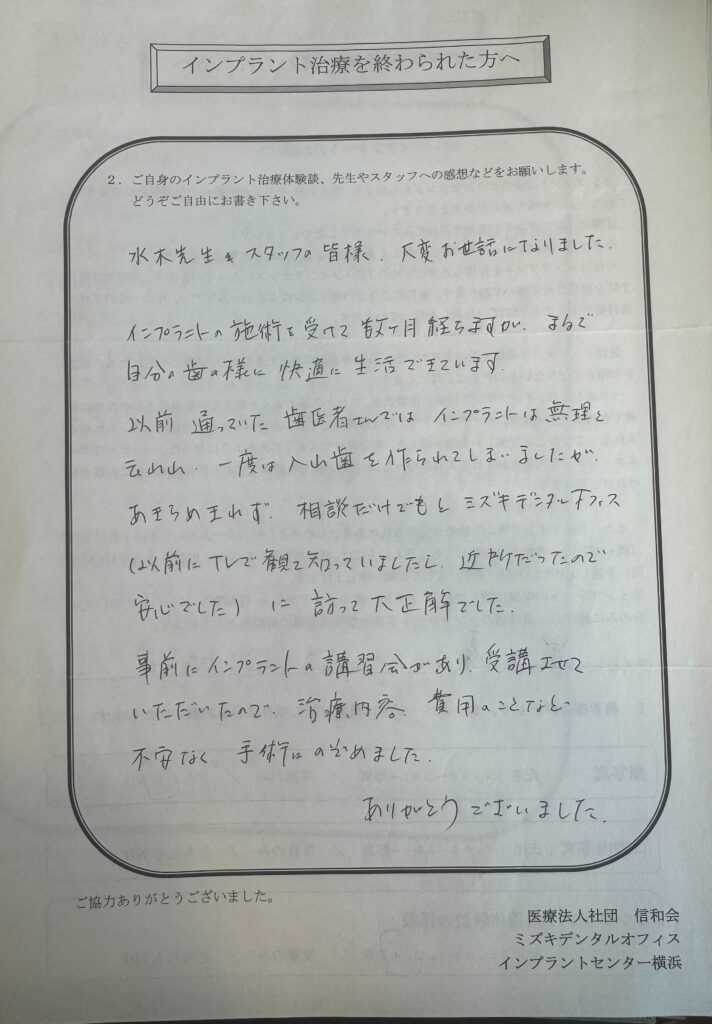 インプラント治療を終わられた方へ
2．ご自身のインプラント治療体験談、先生やスタッフへの感想などをお願いします。
どうぞご自由にお書き下さい。
水木先生&スタッフの皆様、大変お世話になりました。
インプラントの施術を受けて数ケ月経ちますが、まるで
自分の歯の様に快適に生活できています。
以前通っていた歯医者さんではインプラントは無理と
云われ、一度は入れ歯を作られてしまいましたが、
あきらめきれず、相談だけでもとミズキデンタルオフィス
(以前にTVで観て知っていましたし、近所だったので
安心でした)に訪って大正解でした。
事前にインプラントの講習会があり、受講させて
いただいたので、治療内容、費用のことなど
不安なく手術にのぞめました。
ありがとうございました。
ご協力ありがとうございました。
医療法人社団　信和会
ミズキデンタルオフィス
インプラントセンター横浜